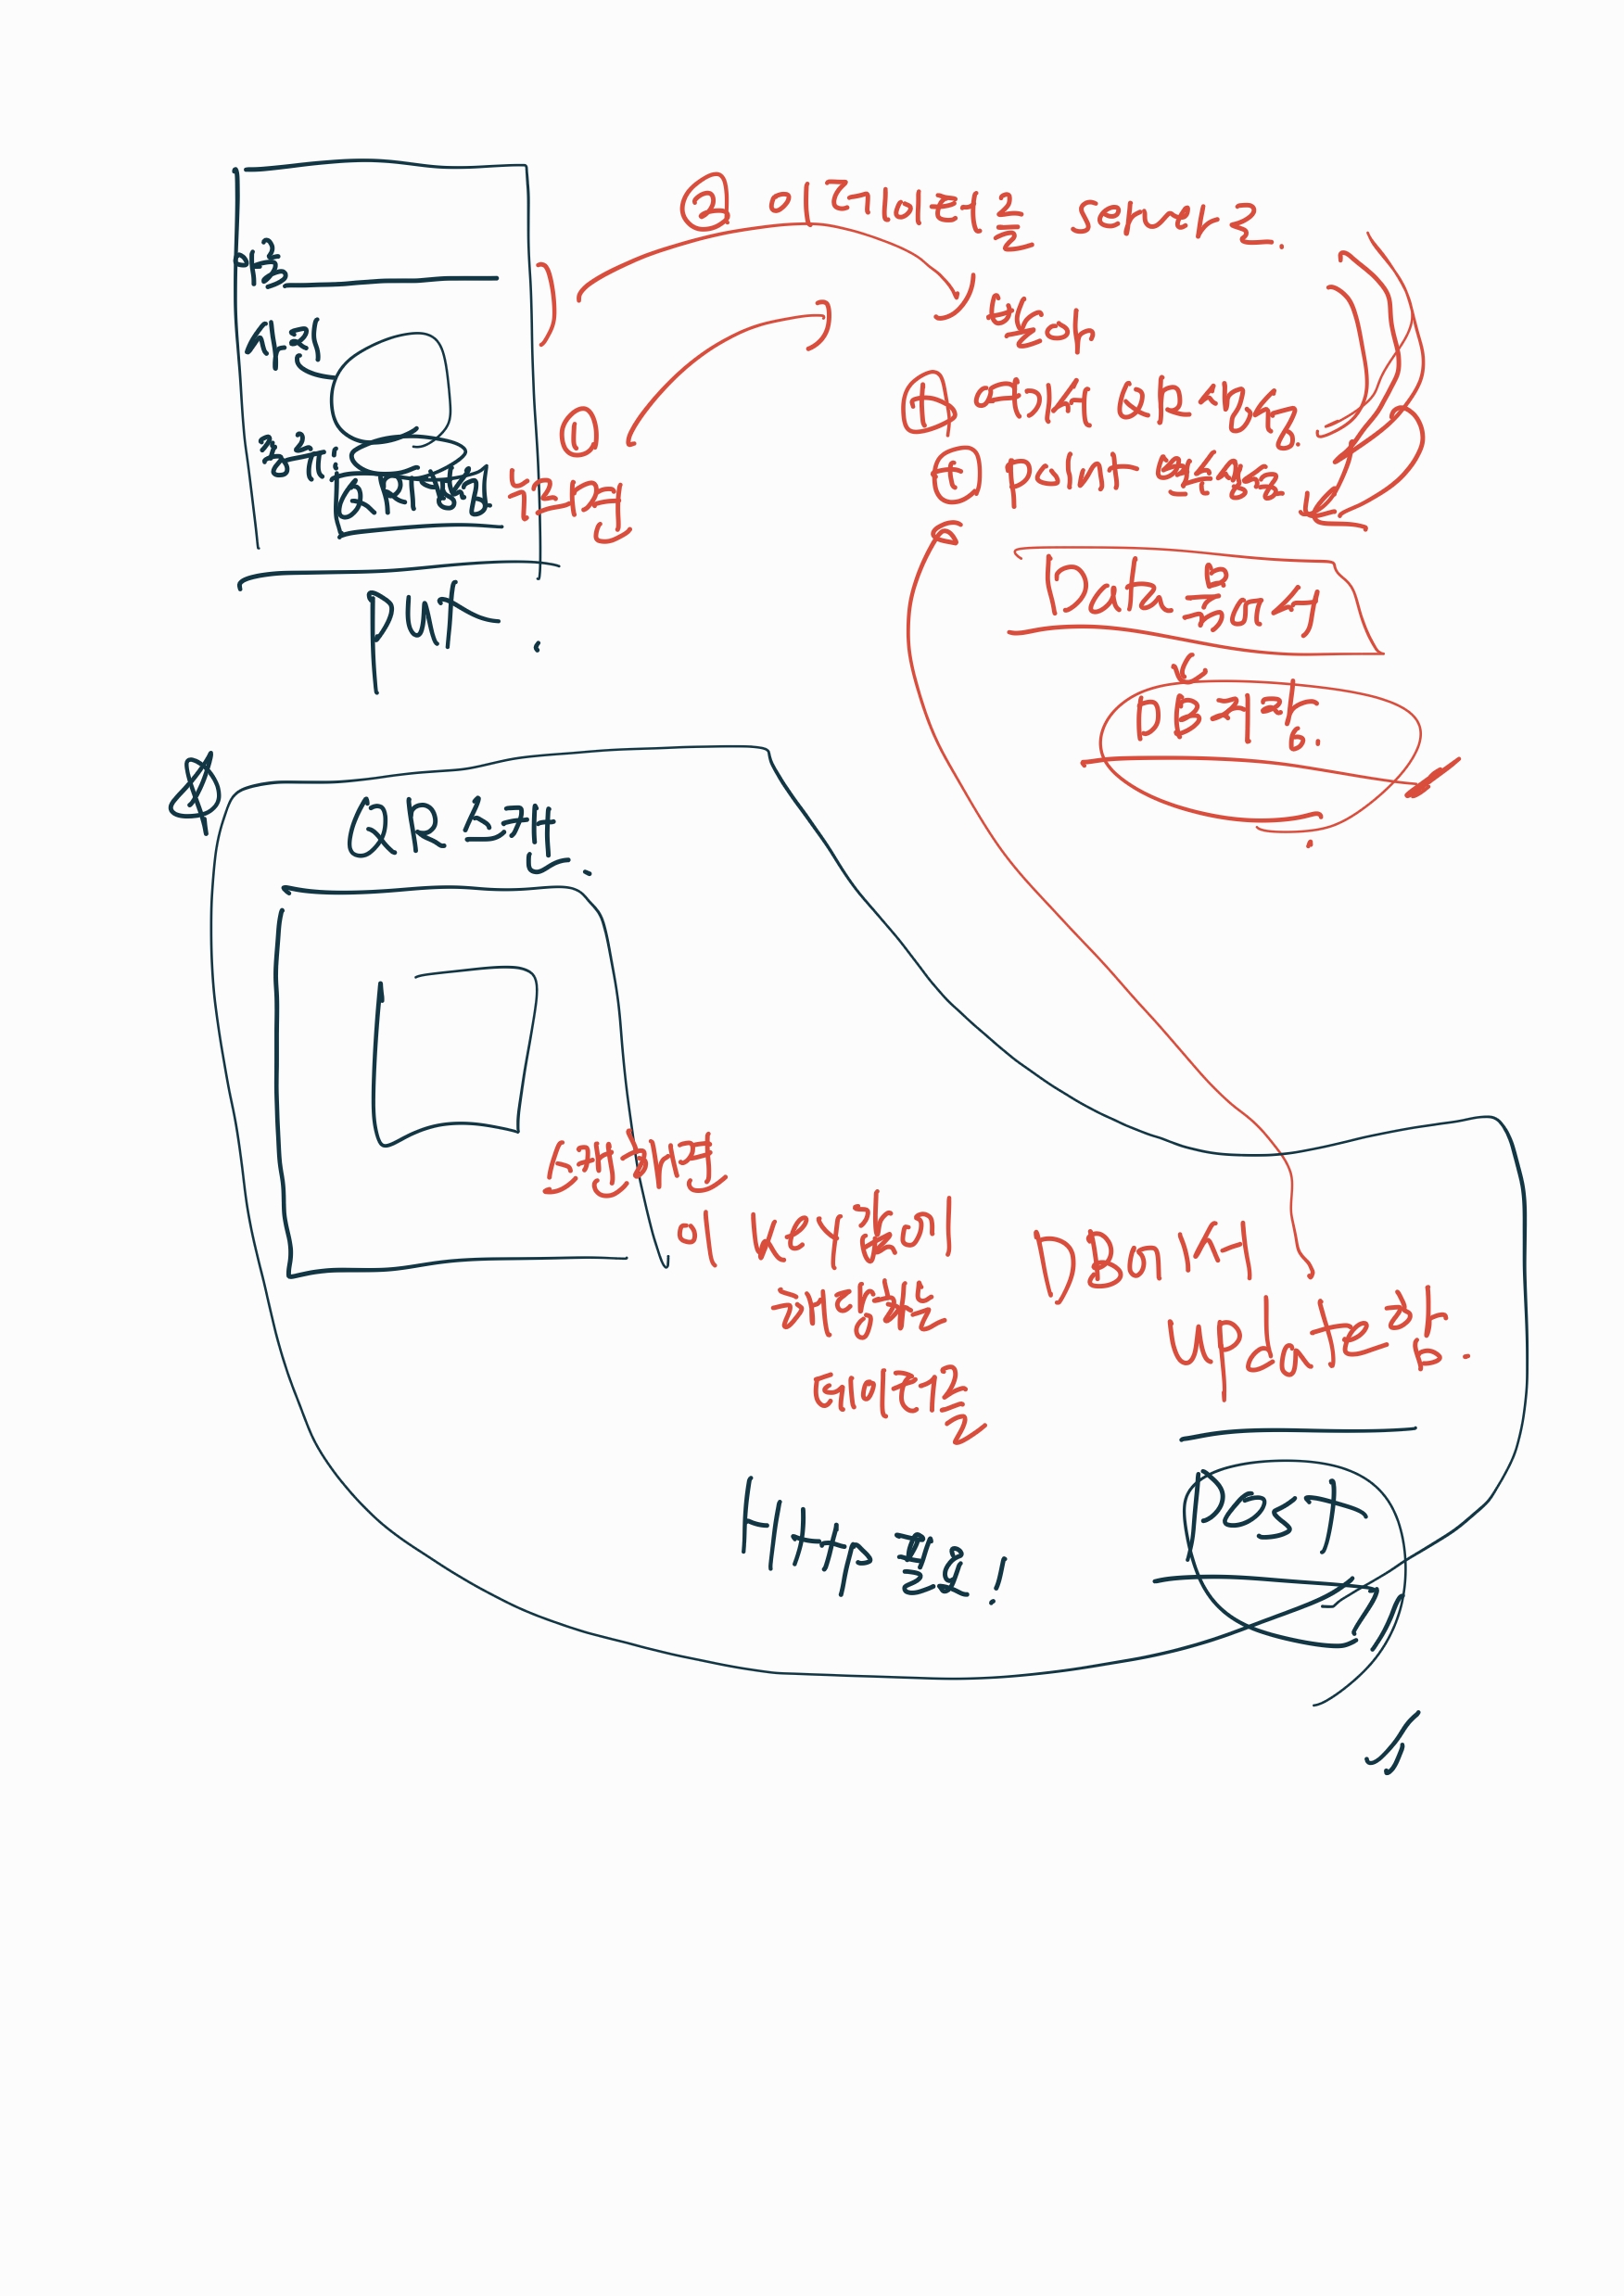 이름
사진
QR생성
put.
① 누르면
② 이 데이터를 server로.
받아
⊕ 여기서 QR 생성.
⊕ point 학생증
Data 묶어서
DB저장.
QR 스캔.
스캔하면
이 key값이
해당하는
데이터를
DB에서
update함.
Https 필요!
Post